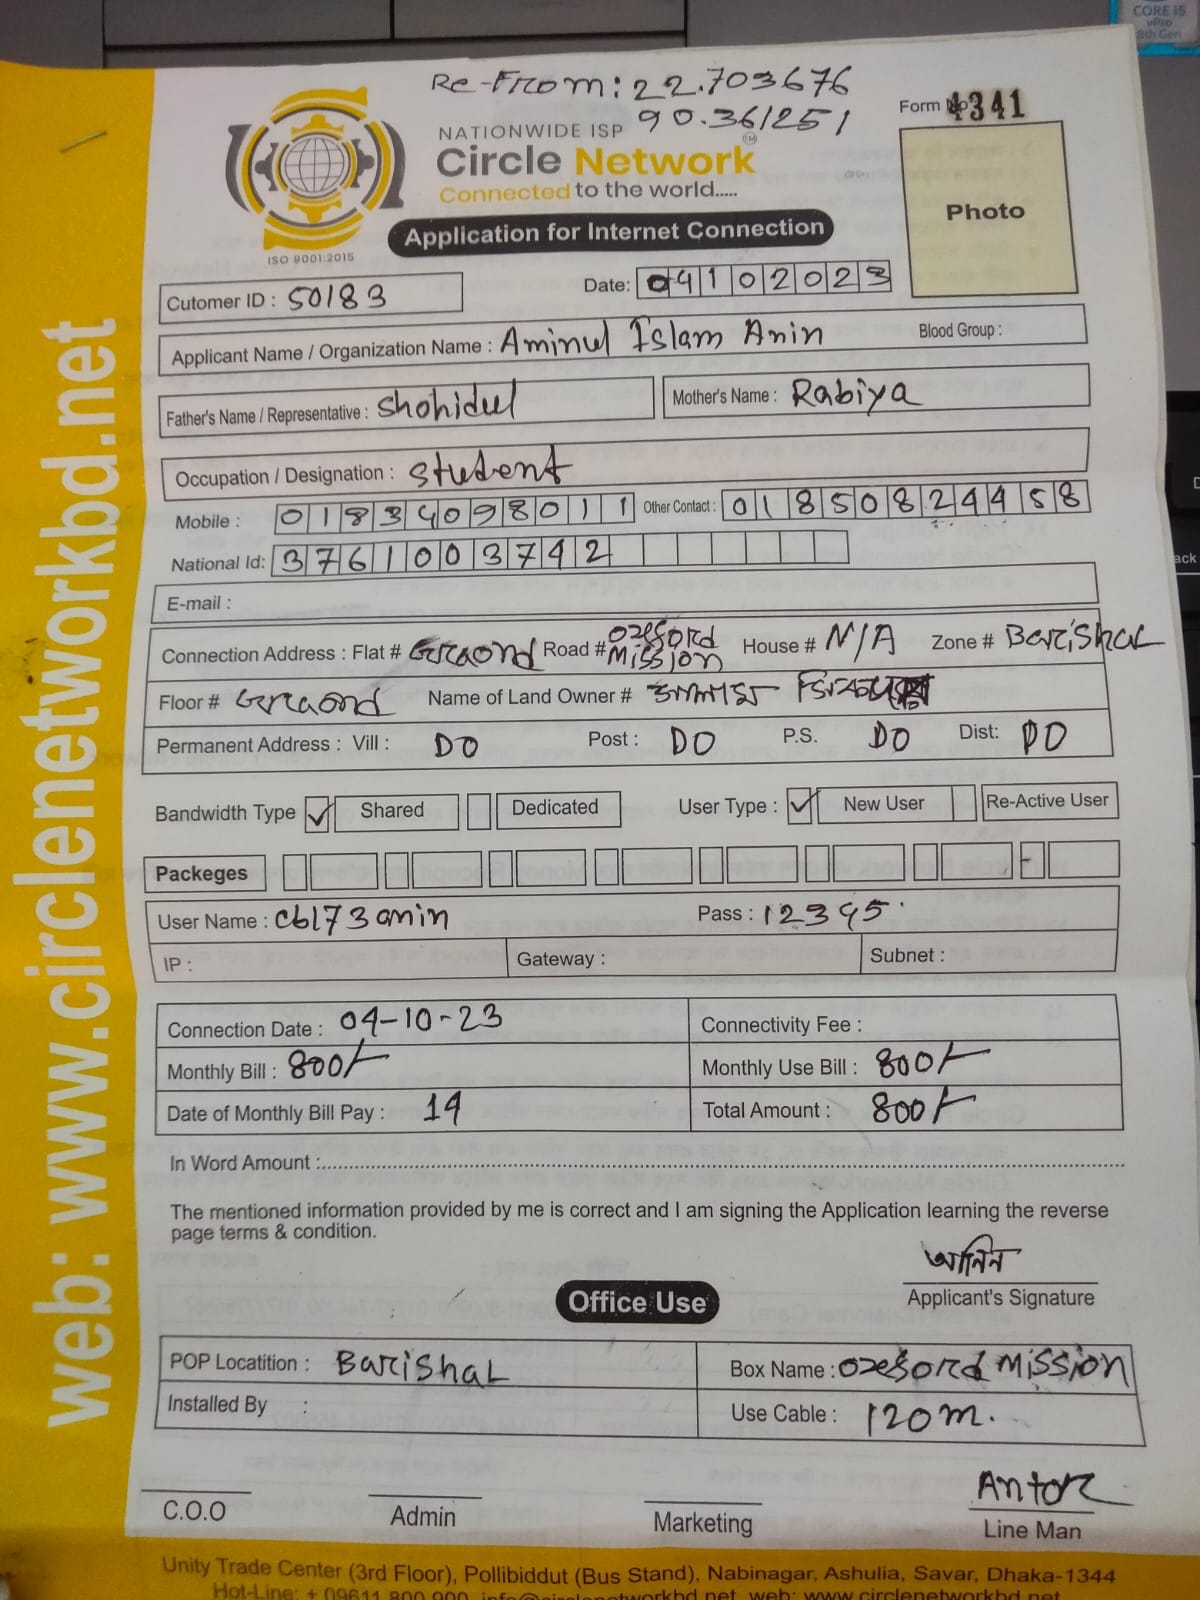 CORE i5
vPro
8th Gen
Re-From: 22.703676
90.361251
Form No 4341
NATIONWIDE ISP
Circle Network TM
Connected to the world.....
ISO 9001:2015
Application for Internet Connection
Photo
Cutomer ID : 50183
Date: 04102023
Applicant Name / Organization Name : Aminul Islam Anin Blood Group :
Father's Name / Representative : Shohidul Mother's Name : Rabiya
Occupation / Designation : Student
Mobile : 01834098011 Other Contact : 01850824458
National Id: 3761003742
E-mail :
Connection Address : Flat # Graond Road # Mission House # N/A Zone # Barishal
Floor # Graond Name of Land Owner #
Permanent Address : Vill : DO Post : DO P.S. DO Dist: DO
Bandwidth Type ✓ Shared Dedicated User Type : ✓ New User Re-Active User
Packeges
User Name : cb173anin Pass : 12345
IP : Gateway : Subnet :
Connection Date : 04-10-23 Connectivity Fee :
Monthly Bill : 800/- Monthly Use Bill : 800/-
Date of Monthly Bill Pay : 14 Total Amount : 800/-
In Word Amount :
The mentioned information provided by me is correct and I am signing the Application learning the reverse
page terms & condition.
আনিন
Applicant's Signature
Office Use
POP Locatition : Barishal Box Name : Mission
Installed By : Use Cable : 120m.
Antor
C.O.O Admin Marketing Line Man
Unity Trade Center (3rd Floor), Pollibiddut (Bus Stand), Nabinagar, Ashulia, Savar, Dhaka-1344
Hot-Line: + 09611 800 900, info@circlenetworkbd.net, web: www.circlenetworkbd.net
web: www.circlenetworkbd.net